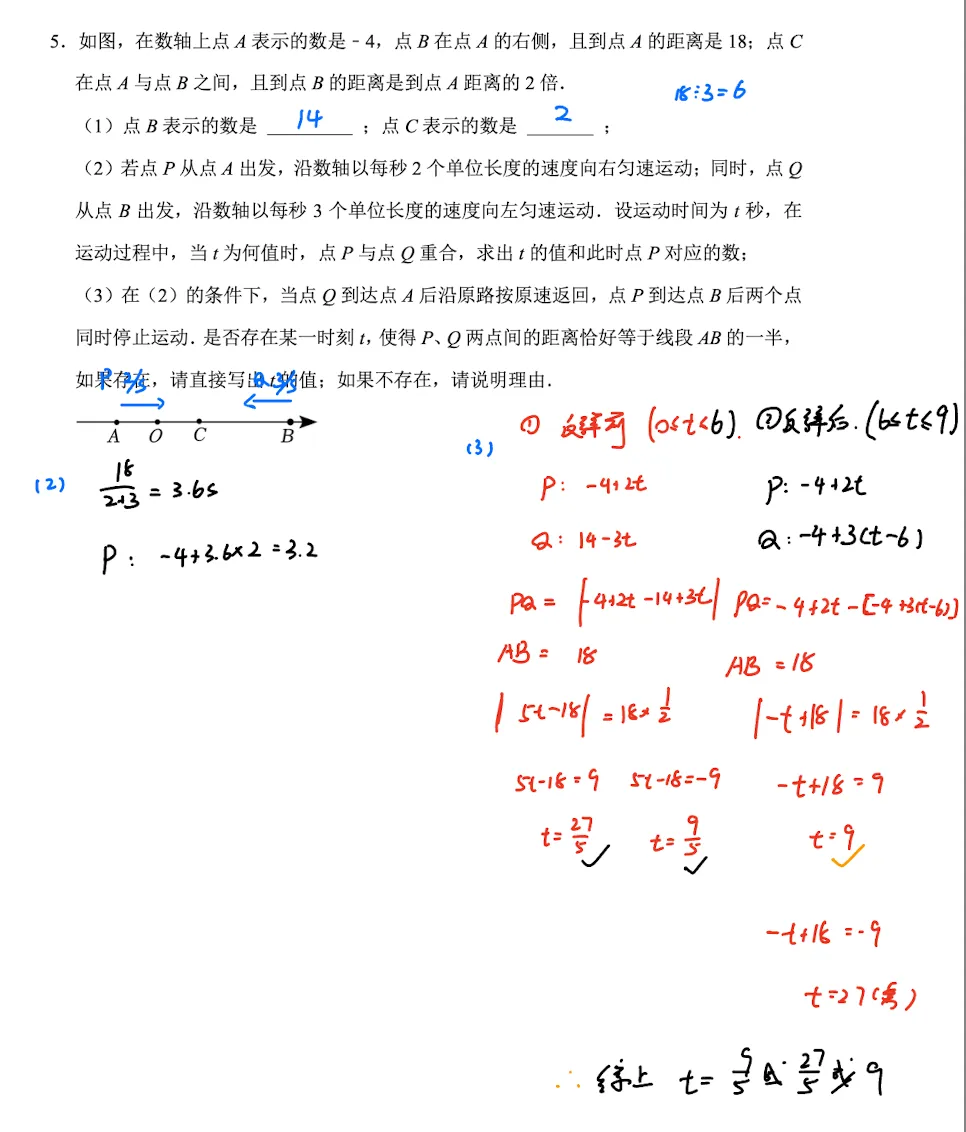 5．如图，在数轴上点 A 表示的数是﹣4，点 B 在点 A 的右侧，且到点 A 的距离是 18；点 C
在点 A 与点 B 之间，且到点 B 的距离是到点 A 距离的 2 倍．
18÷3=6
（1）点 B 表示的数是 14 ；点 C 表示的数是 2 ；
（2）若点 P 从点 A 出发，沿数轴以每秒 2 个单位长度的速度向右匀速运动；同时，点 Q
从点 B 出发，沿数轴以每秒 3 个单位长度的速度向左匀速运动．设运动时间为 t 秒，在
运动过程中，当 t 为何值时，点 P 与点 Q 重合，求出 t 的值和此时点 P 对应的数；
（3）在（2）的条件下，当点 Q 到达点 A 后沿原路按原速返回，点 P 到达点 B 后两个点
同时停止运动．是否存在某一时刻 t，使得 P、Q 两点间的距离恰好等于线段 AB 的一半，
如果存在，请直接写出 t 的值；如果不存在，请说明理由．
P 2/s Q 3/s
A O C B
(2) 18/(2+3) = 3.6s
P： -4+3.6×2=3.2
(3) ① 反弹前 (0≤t≤6). ②反弹后. (6≤t≤9)
P: -4+2t P: -4+2t
Q: 14-3t Q: -4+3(t-6)
PQ = |-4+2t-14+3t| PQ=-4+2t-[-4+3(t-6)]
AB = 18 AB = 18
|5t-18| = 18×1/2 |-t+18| = 18×1/2
5t-18=9 5t-18=-9 -t+18=9
t=27/5 t=9/5 t=9
-t+18=-9
t=27(舍)
∴ 综上 t= 9/5 或 27/5 或 9